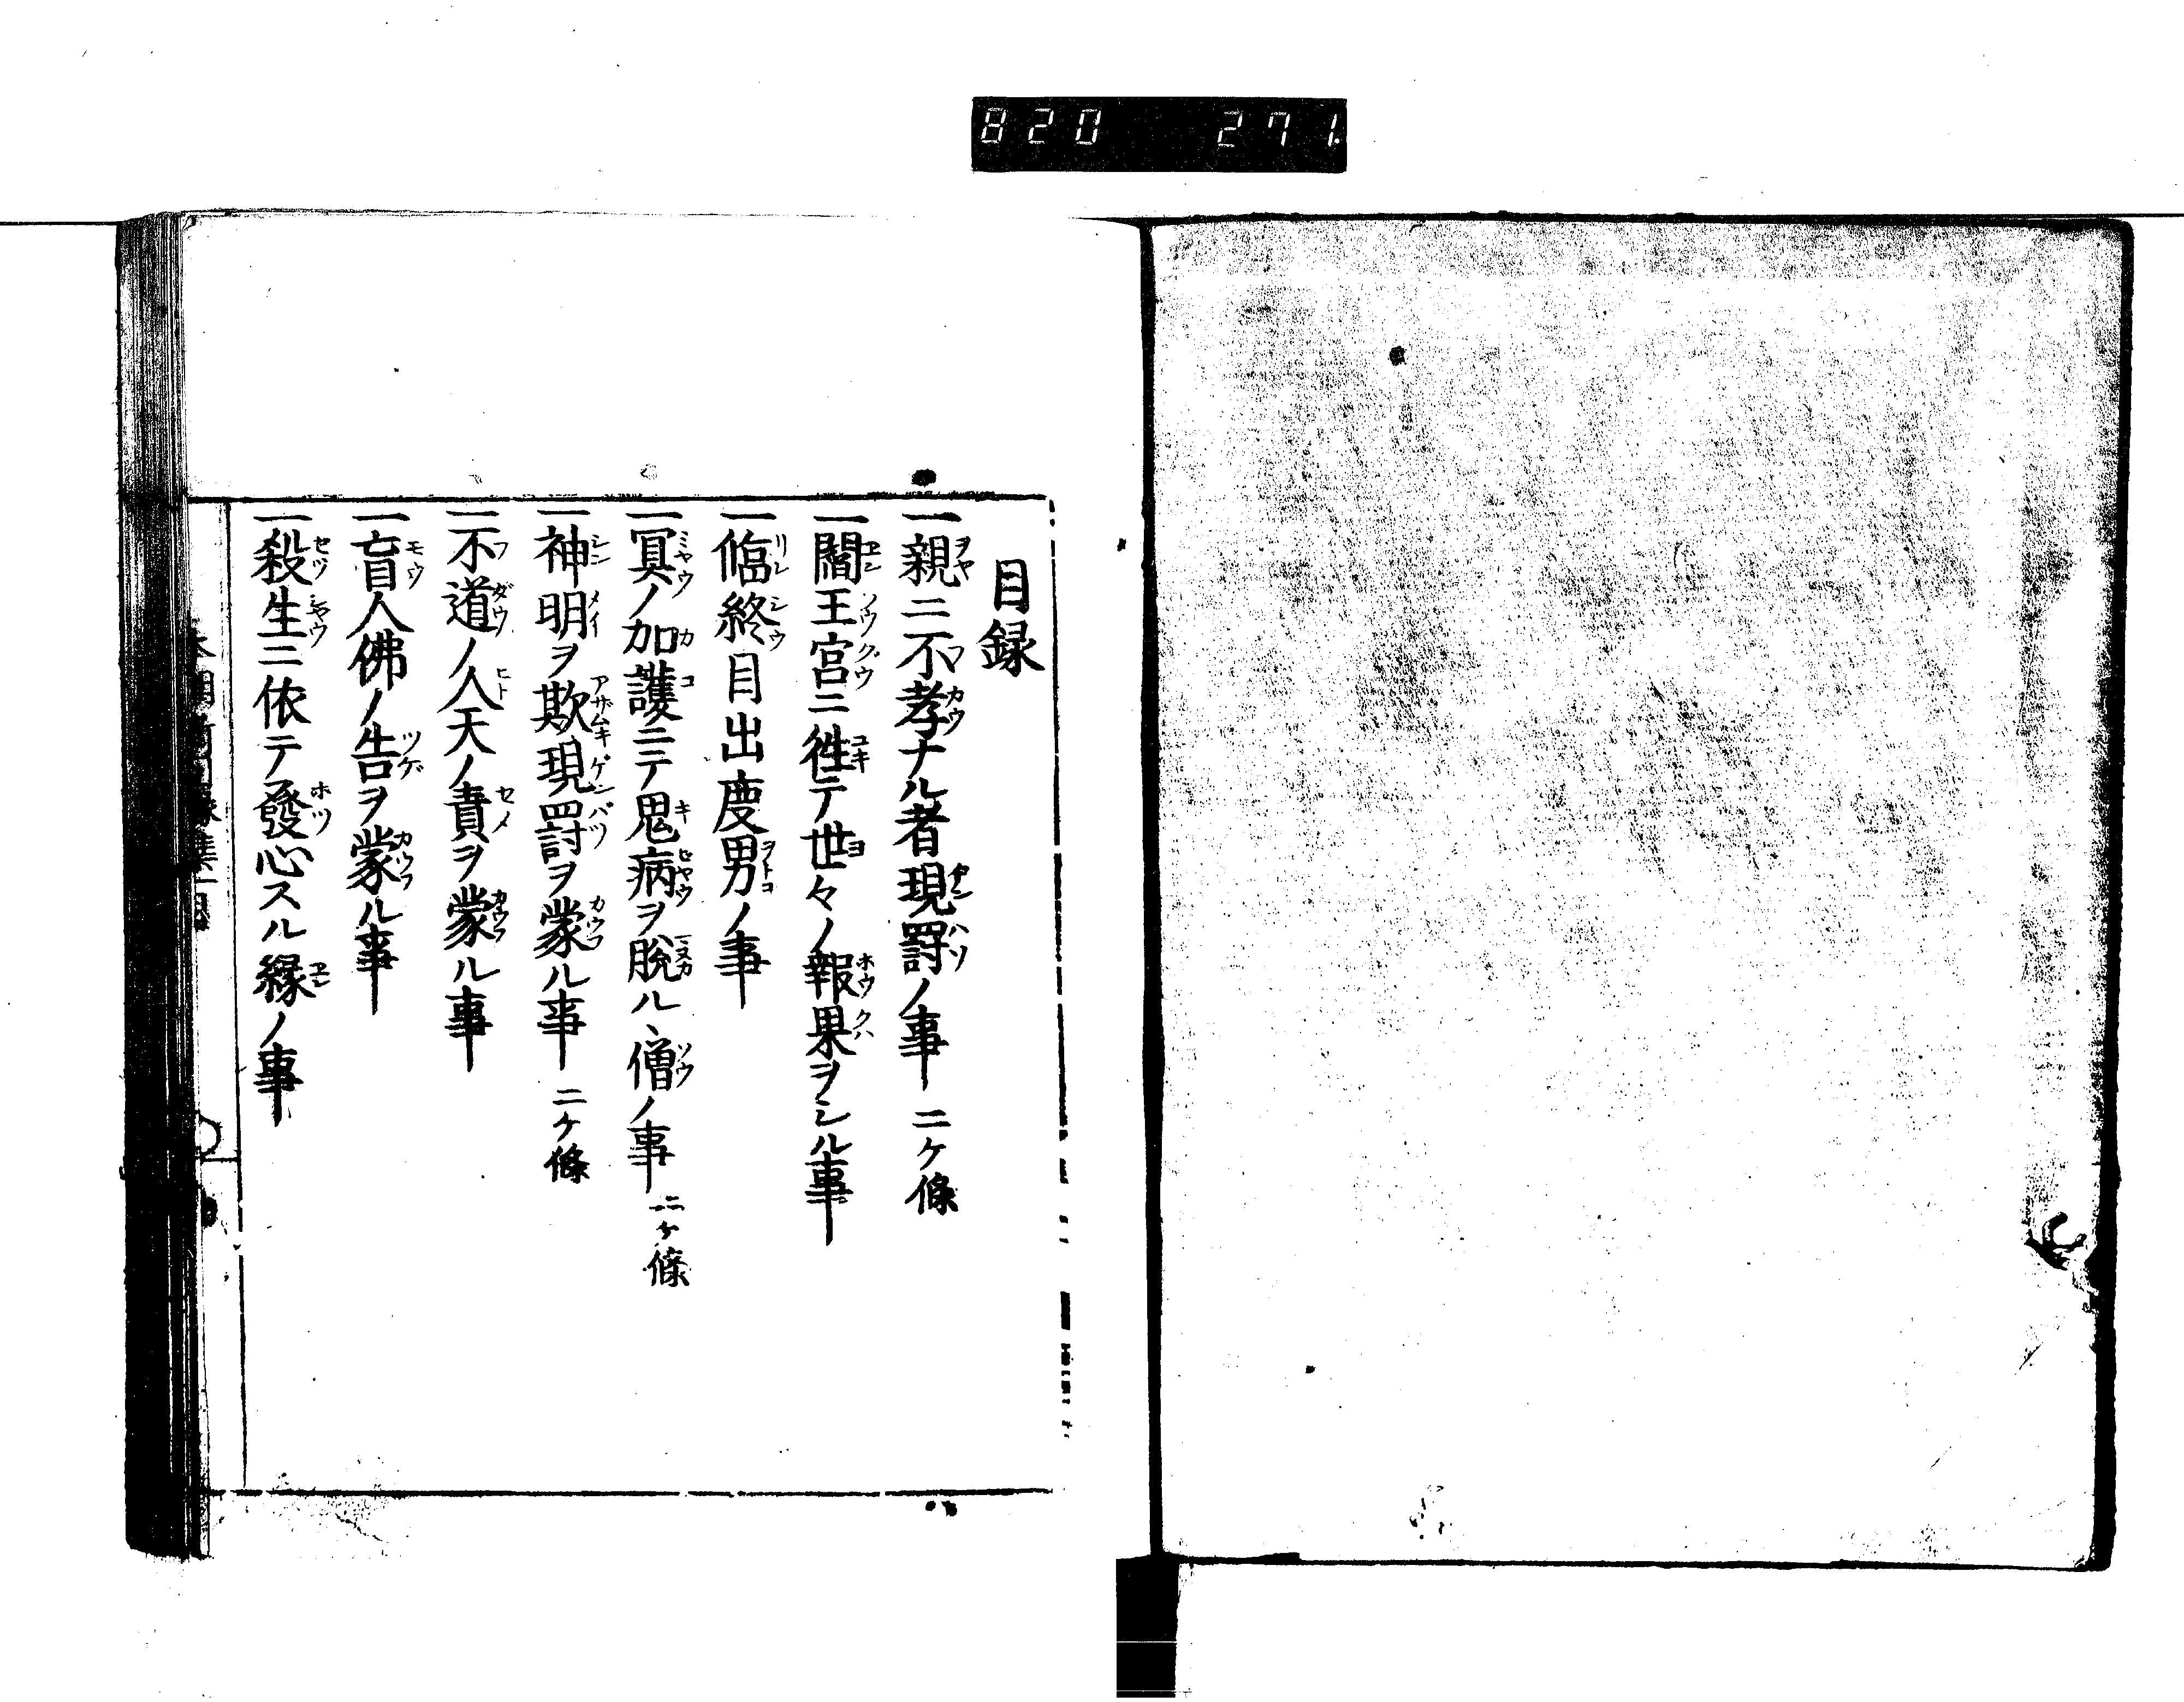 820 271
目録
一親ニ不孝ナル者現罰ノ事 二ケ條
一閻王宮ニ徃テ世々ノ報果ヲシル事
一臨終目出慶男ノ事
一冥ノ加護ニテ鬼病ヲ脱ルヽ僧ノ事 二ケ條
一神明ヲ欺現罰ヲ蒙ル事 二ケ條
一不道ノ人天ノ責ヲ蒙ル事
一盲人佛ノ告ヲ蒙ル事
一殺生ニ依テ發心スル縁ノ事